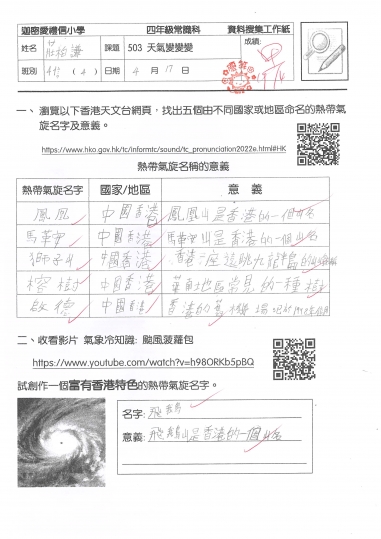 迦密愛禮信小學 四年級常識科 資料搜集工作紙
姓名 莊柏謙 課題 503 天氣變變變 成績:
班別 4信 ( 4 ) 日期 4 月 17 日
一、 瀏覽以下香港天文台網頁，找出五個由不同國家或地區命名的熱帶氣
旋名字及意義。
https://www.hko.gov.hk/tc/informtc/sound/tc_pronunciation2022e.htm#HK
熱帶氣旋名稱的意義
熱帶氣旋名字 國家/地區 意 義
鳳凰 中國香港 鳳凰山是香港的一個山名
馬鞍 中國香港 馬鞍山是香港的一個山名
獅子山 中國香港 香港一座遠眺九龍半島的
榕樹 中國香港 華南地區常見的一種樹
啟德 中國香港 香港的舊機場
二、收看影片 氣象冷知識: 颱風菠蘿包
https://www.youtube.com/watch?v=h98ORKb5pBQ
試創作一個富有香港特色的熱帶氣旋名字。
名字: 飛鵝
意義: 飛鵝山是香港的一個山名